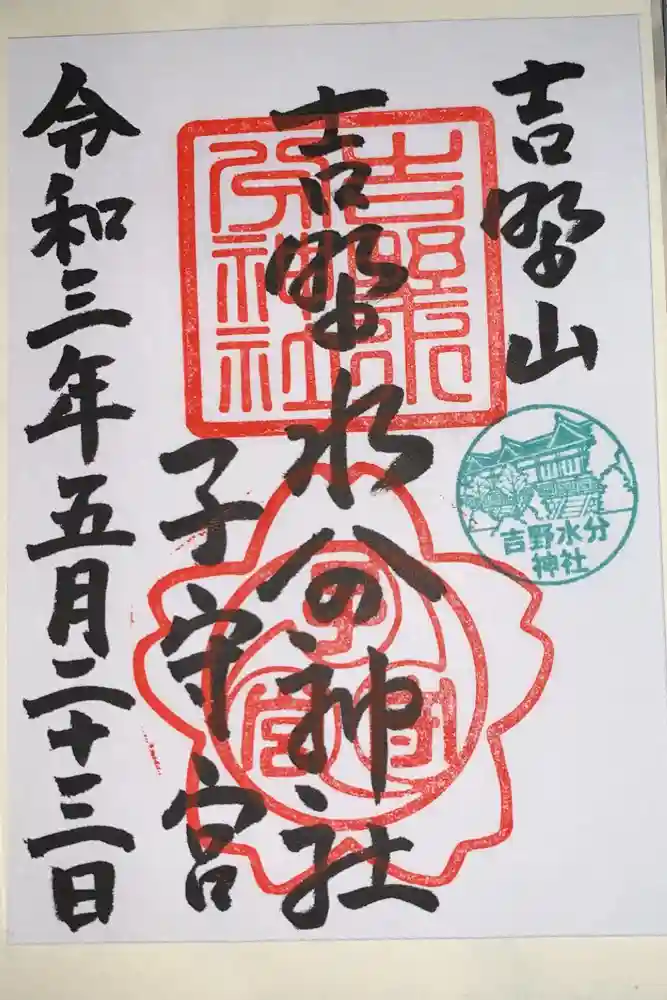 吉野山
吉野水分神社
子守宮
令和三年五月二十三日
吉野水
分神社
子守宮
吉野水分
神社